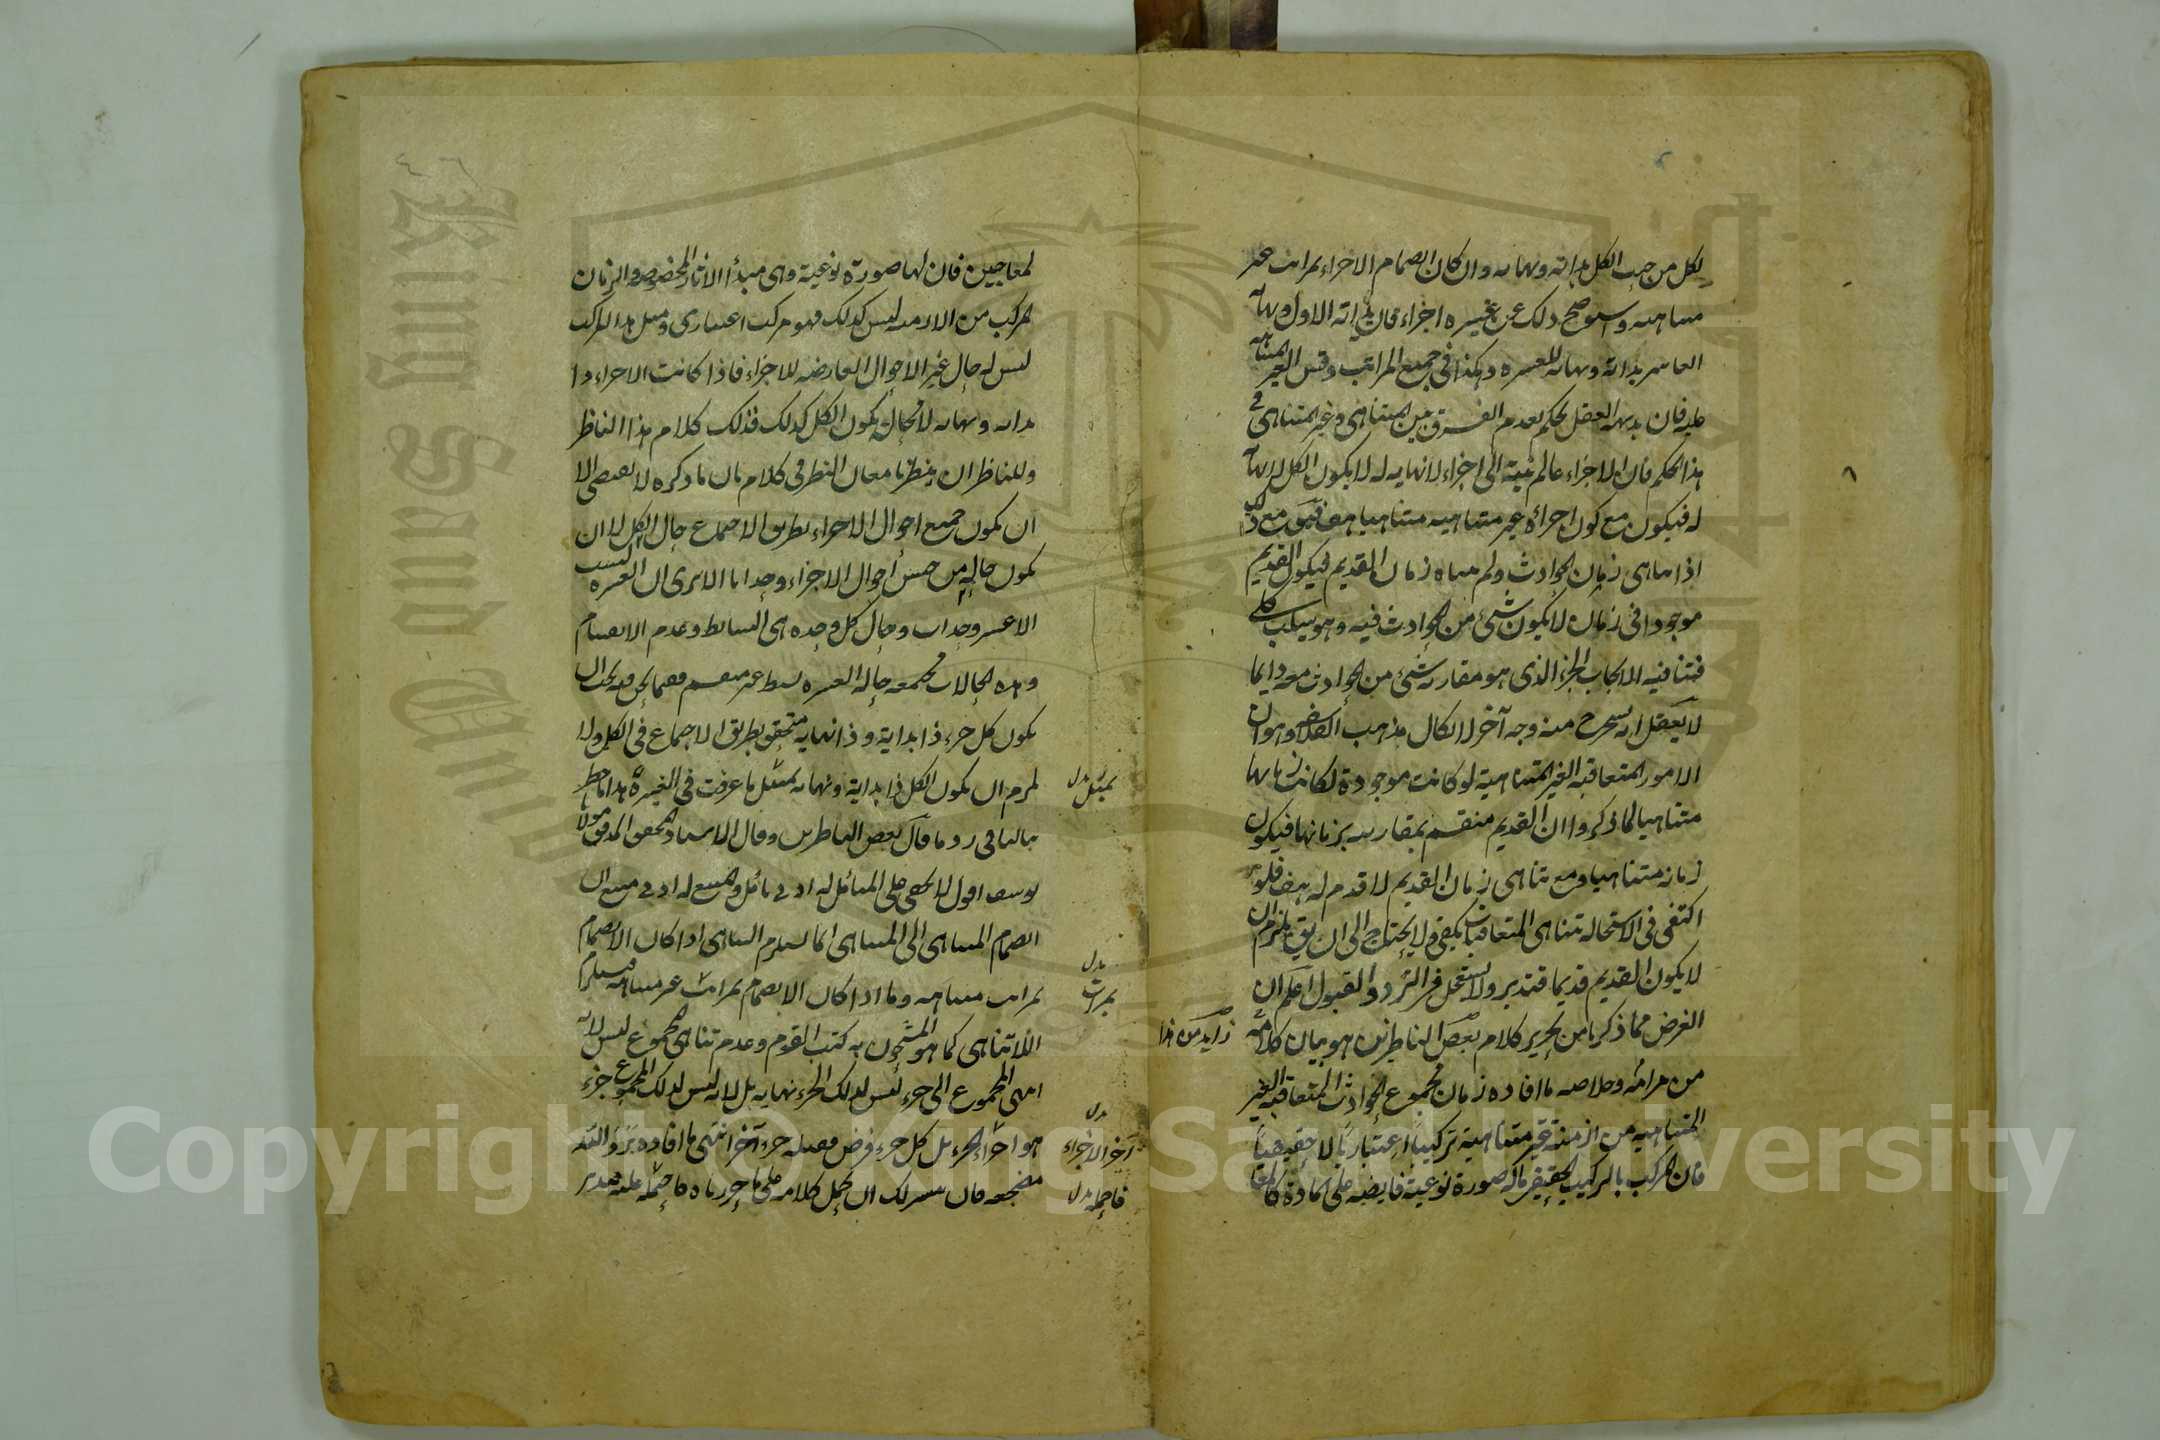 لكل من حيث الكل بداية ونهاية وان كان انضمام الاجزاء بمراتب غير
متناهية وستوضح ذلك عن عشرة اجزاء فان بداية الاول ونهاية
العاشر بداية ونهاية للعشرة وهكذا في جميع المراتب وقس الغير المتناهية
عليه فان بديهة العقل يحكم بعدم الفرق بين المتناهي وغير المتناهي في
هذا الحكم فان الاجزاء ما لم تنته الى اجزاء لا نهاية له لا يكون الكل لا نهاية
له فيكون مع كون اجزاءه غير متناهية متناهيا هف فنقول مع ذلك
اذا تناهى زمان الحوادث ولم يتناه زمان القديم فيكون القديم
موجودا في زمان لا يكون شيء من الحوادث فيه وهو سلب كلي
فتنافيه الايجاب الجزء الذي هو مقارنة شيء من الحوادث معه دايما
لا يعقل انه يخرج منه وجه آخر لابطال مذهب الفلاسفة وهو ان
الامور المتعاقبة الغير المتناهية لو كانت موجودة لكانت زمانها
متناهيا لما ذكروا ان القديم منقسم بمقارنته بزمانها فيكون
زمانه متناهيا ومع تناهي زمان القديم لا قدم له هف فلو
اكتفى في الاستحالة بتناهي المتعاقبات يكفي ولا يحتاج الى ان يق يلزم ان
لا يكون القديم قديما فتدبر ولا تستعجل في الترد والقبول اعلم ان
الغرض مما ذكرنا من تحرير كلام بعض الناظرين هو بيان كلامه
زايد من هذا
من مرامه وخلاصة ما افاده زمان مجموع الحوادث المتعاقبة الغير
المتناهية من ازمنة غير متناهية تركيبا اعتباريا لا حقيقيا
فان المركب بالتركيب الحقيقي ماله صورة نوعية فايضة على المادة كالمعا
لمعاجين فان لها صورة نوعية وهي مبدأ الاثار المخصوصة والزمان
المركب من الازمنة ليس كذلك فهو مركب اعتباري ومثل هذا المركب
ليس له حال غير الاحوال العارضة للاجزاء فاذا كانت الاجزاء ذا
بداية ونهاية لا محالة يكون الكل كذلك فذلك كلام هذا الناظر
وللناظر ان ينظر بامعان النظر في كلام بان ما ذكره لا يقتضي الا
ان يكون جميع احوال الاجزاء بطريق الاجتماع حال الكل لا ان
يكون حاله من جنس احوال الاجزاء وحدانا الا يرى ان العشرة ليست
الا عشر وحدات وحال كل وحدة هي البساطة وعدم الانقسام
وهذه الحالات مجتمعة حالة العشرة بسيط غير منقسم فيما نحن فيه يجب ان
يكون كل جزء ذا بداية وذا نهاية متحقق بطريق الاجتماع في الكل ولا
يلزم ان يكون الكل ذا بداية ونهاية بمثل ما عرفت في العشرة هذا ما خطر
بمثل بدل
ببالنا في رد ما قال بعض الناظرين وقال الاستاد المحقق المدقق مولانا
يوسف اقول لا يخفى على المتأمل له ادنى تأمل والمتتبع له ادنى تتبع ان
انضمام المتناهي الى المتناهي انما يستلزم التناهي اذا كان الانضمام
بدل
بمراتب متناهية وما اذا كان الانضمام بمراتب غير متناهية فيستلزم
بمرات
اللاتناهي كما هو المشحون به كتب القوم وعدم تناهي المجموع ليس لانه
انتهى المجموع الى جزء ليس لذلك الجزء نهاية بل لانه ليس لذلك المجموع جزء
بدل
هو آخر الجزء بل كل جزء فرض فبعده جزء آخر انتهى ما افاده برد الله
آخر الاجزاء
مضجعه فان تيسر لك ان تحمل كلامه على ما حررناه فاحمله عليه فتدبر
فاحمله بدل